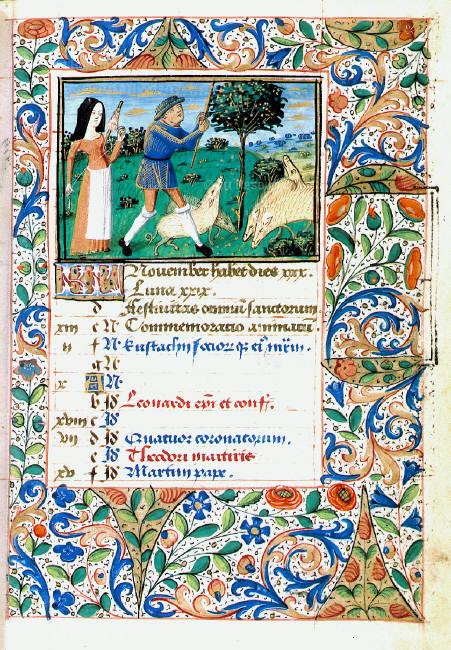 KL November habet dies xxx.
Luna xxix.
d Festiuitas omniū sanctorum
xiii e N Commemoratio animarū
ii f N Eustachii socior
g N
x A N
b Id Leonardi epi et conf.
xviii c Id
vii d Id Quatuor coronatorum.
e Id Theodori martiris
xv f Id Martini pape.